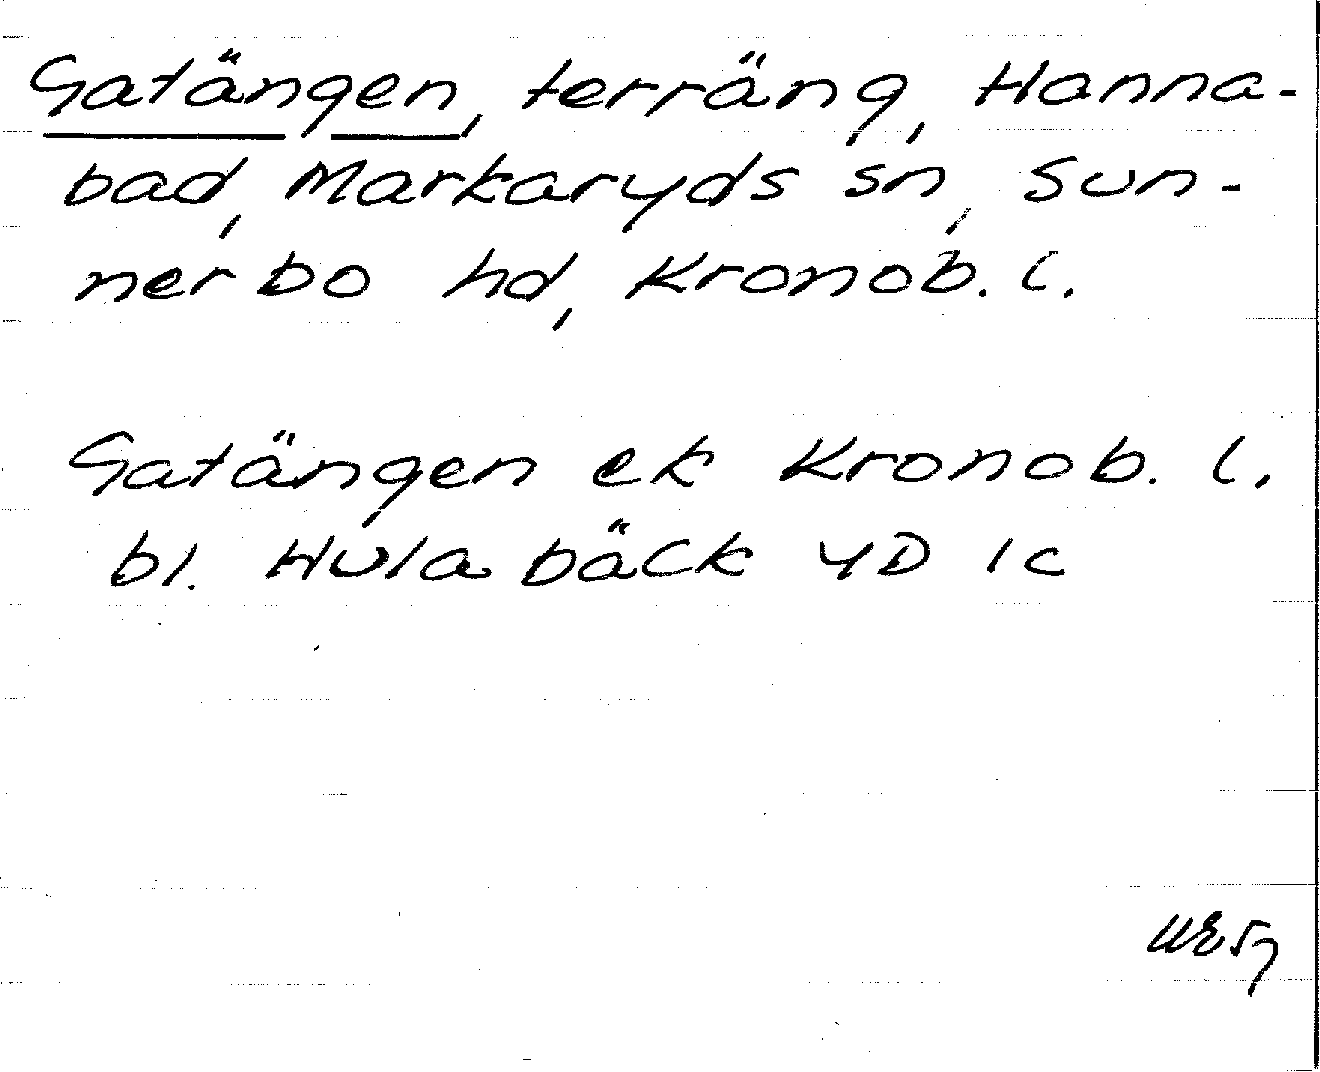 Gatängen, terräng, Hanna-
bad, Markaryds sn, Sun-
nerbo hd, Kronob. l.
Gatängen ek Kronob. l.
bl. Hula bäck 4D 1c